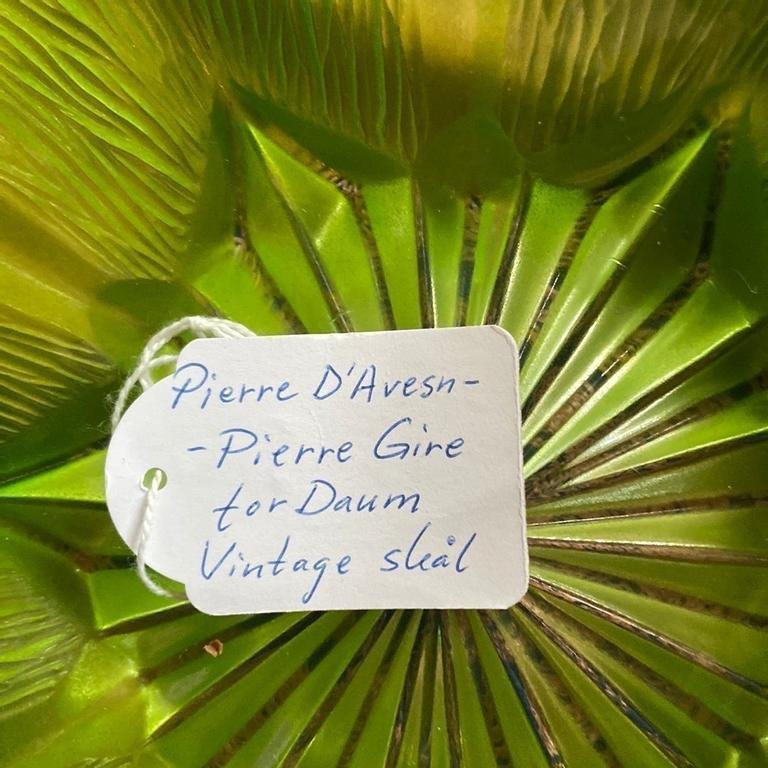 Pierre D'Avesn-
-Pierre Gire
for Daum
Vintage skål